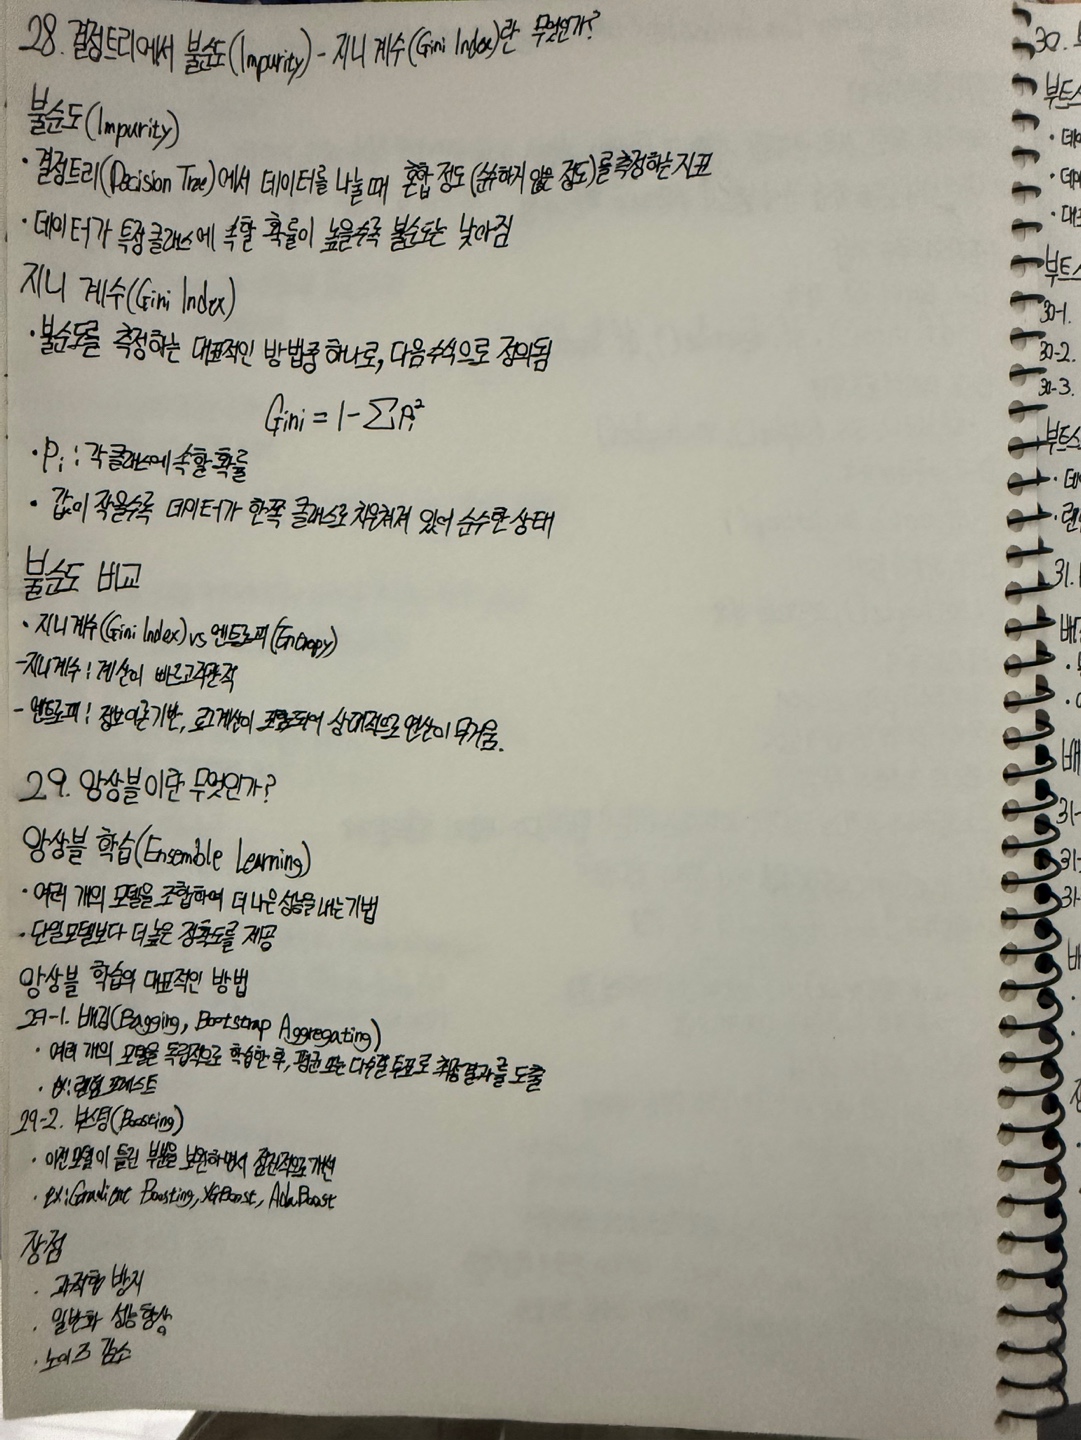 28. 결정트리에서 불순도(Impurity) - 지니 계수(Gini Index)란 무엇인가?
불순도(Impurity)
· 결정트리(Decision Tree)에서 데이터를 나눌 때 혼합 정도(순수하지 않은 정도)를 측정하는 지표
· 데이터가 특정 클래스에 속할 확률이 높을수록 불순도는 낮아짐
지니 계수(Gini Index)
· 불순도를 측정하는 대표적인 방법중 하나로, 다음 수식으로 정의됨
Gini = 1 - ∑Pi²
· Pi : 각 클래스에 속할 확률
· 값이 작을수록 데이터가 한쪽 클래스로 치우쳐져 있어 순수한 상태
불순도 비교
· 지니계수(Gini Index) vs 엔트로피(Entropy)
- 지니계수 : 계산이 빠르고 직관적
- 엔트로피 : 정보이론 기반, 로그 계산이 포함되어 상대적으로 연산이 무거움.
29. 앙상블이란 무엇인가?
앙상블 학습(Ensemble Learning)
· 여러 개의 모델을 조합하여 더 나은 성능을 내는 기법
· 단일모델보다 더 높은 정확도를 제공
앙상블 학습의 대표적인 방법
29-1. 배깅(Bagging, Bootstrap Aggregating)
· 여러 개의 모델을 독립적으로 학습한 후, 평균 또는 다수결 투표로 최종결과를 도출
· ex: 랜덤 포레스트
29-2. 부스팅(Boosting)
· 이전 모델이 틀린 부분을 보완하면서 점진적으로 개선
· ex: Gradient Boosting, XGBoost, AdaBoost
장점
· 과적합 방지
· 일반화 성능 향상
· 노이즈 감소
30.
30-1.
30-2.
30-3.
31.